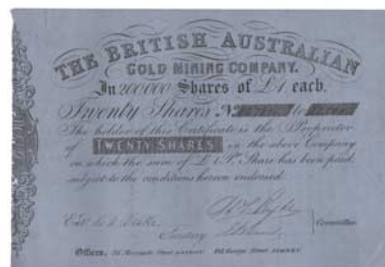 THE BRITISH AUSTRALIAN
GOLD MINING COMPANY.
In 200000 Shares of £1 each.
Twenty Shares No to
The holder of this Certificate is the Proprietor
of TWENTY SHARES in the above Company
on which the sum of £1 P. Share has been paid
subject to the conditions hereon endorsed
Secretary
Committee
Offices, George Street SYDNEY